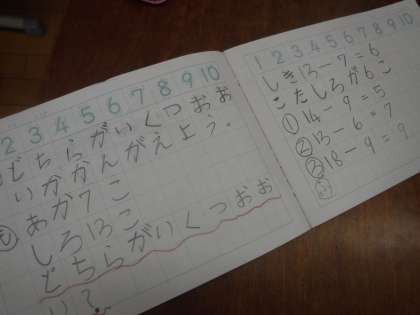 2 3 4 5 6 7 8 9 10
どちらがいくつおお
いかかんがえよう。
も
あか7こ
しろ13こ
どちらがいくつおお
い?
1 2 3 4 5 6 7 8 9 10
しき13-7=6
こたしろが6こ
①14-9=5
②13-6=7
③18-9=9